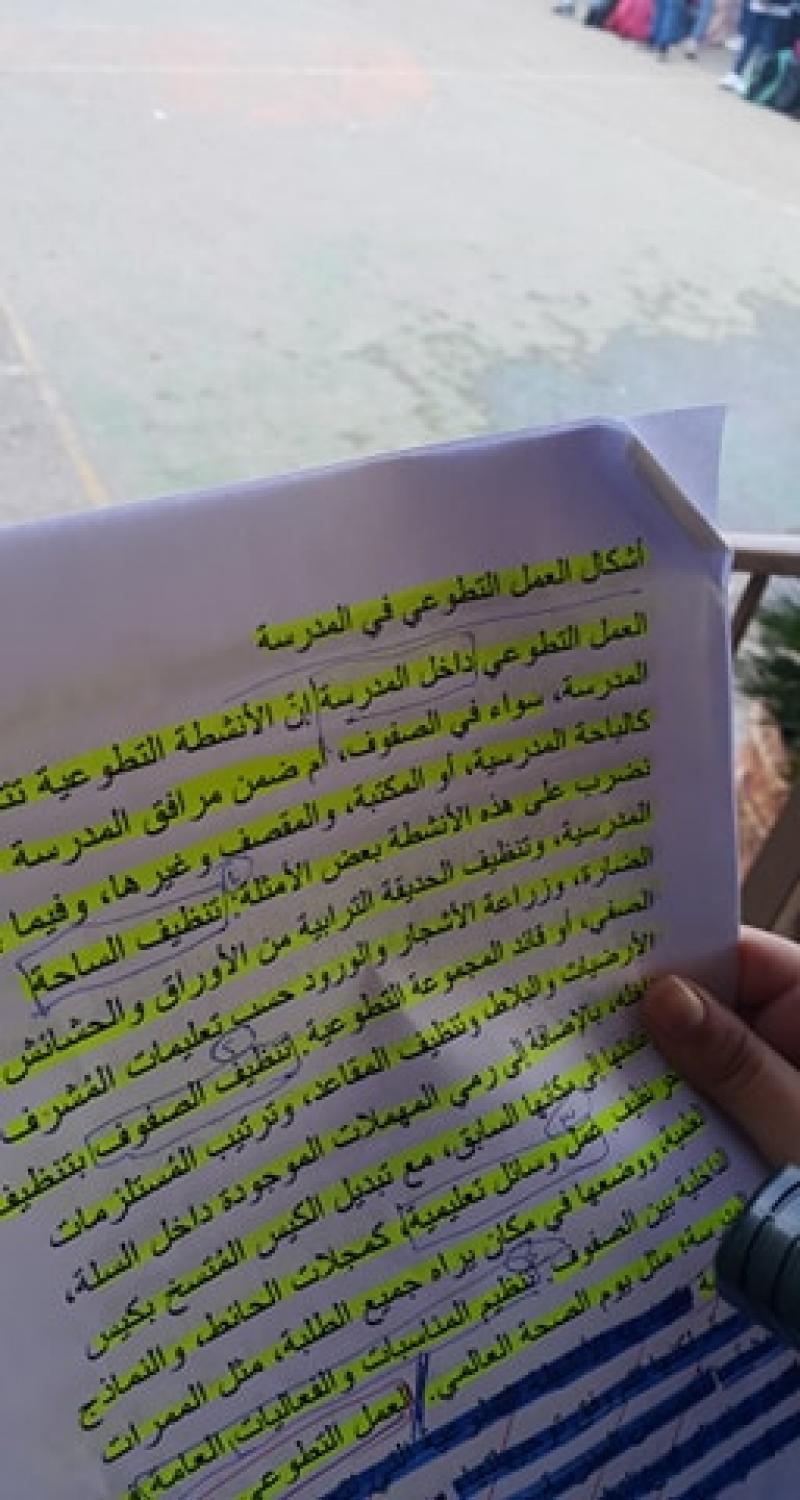 أشكال العمل التطوعي في المدرسة
العمل التطوعي داخل المدرسة إنّ الأنشطة التطوعية
المدرسة، سواء في الصفوف، أم ضمن مرافق المدرسة
كالباحة المدرسية، أو المكتبة، والمقصف وغيرها، وفيما
نضرب على هذه الأنشطة بعض الأمثلة: تنظيف الساحة
المدرسية، وتنظيف الحديقة الترابية من الأوراق والحشائش
الضارة، وزراعة الأشجار والورود حسب تعليمات المُشرف
الصفي، أو قائد المجموعة التطوعية. تنظيف الصفوف بتنظيف
الأرضيات والبلاط، وتنظيف المقاعد، وترتيب المُستلزمات
بالإضافة إلى رمي المهملات الموجودة داخل السلة،
إلى مكانها السابق، مع تبديل الكيس المُتسخ بكيس
نظيف. عمل وسائل تعليمية، كمجلات الحائط، والنماذج
ووضعها في مكان يراه جميع الطلبة، مثل الممرات
بين الصفوف. تنظيم المناسبات والفعاليات العامة
مثل يوم الصحة العالمي. العمل التطوعي